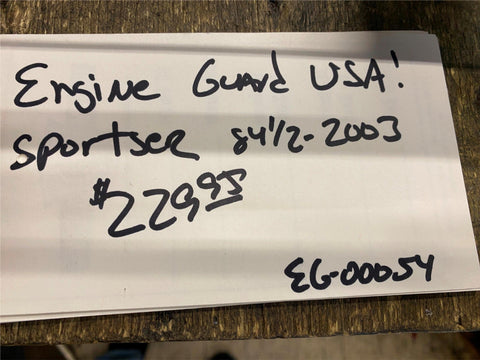 Engine Guard USA!
Sportser 84½-2003
$229.95
EG-00054